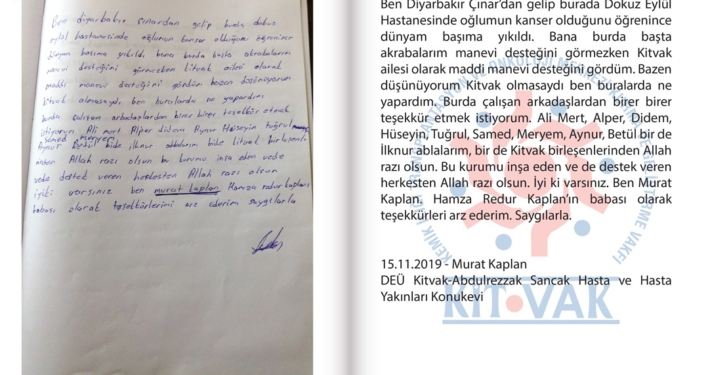 Ben diyarbakır çınardan gelip burda dokuz
eylül hastanesinde oğlumun kanser olduğunu öğrenince
dünyam başıma yıkıldı. bana burda başta akrabalarım
manevi desteğini görmezken kitvak ailesi olarak
maddi manevi desteğini gördüm bazen düşünüyorum
kitvak olmasaydı ben buralarda ne yapardım
burda çalışan arkadaşlardan birer birer teşekkür etmek
istiyorum Ali mert Alper didem Aynur Hüseyin tuğrul
samed meryem
Aynur Betül bide ilknur ablalarım bide kitvak
Allah razı olsun bu kurumu inşa eden vede
vede destek veren herkesten Allah razı olsun
iyiki varsınız ben murat kaplan Hamza redur kaplanın
babası olarak teşekkürlerimi arz ederim saygılarla
Ben Diyarbakır Çınar'dan gelip burada Dokuz Eylül
Hastanesinde oğlumun kanser olduğunu öğrenince
dünyam başıma yıkıldı. Bana burada başta
akrabalarım manevi desteğini görmezken Kitvak
ailesi olarak maddi manevi desteğini gördüm. Bazen
düşünüyorum Kitvak olmasaydı ben buralarda ne
yapardım. Burda çalışan arkadaslardan birer birer
teşekkür etmek istiyorum. Ali Mert, Alper, Didem,
Hüseyin, Tuğrul, Samed, Meryem, Aynur, Betül bir de
İlknur ablalarım, bir de Kitvak birleşenlerinden Allah
razı olsun. Bu kurumu inşa eden ve de destek veren
herkesten Allah razı olsun. İyi ki varsınız. Ben Murat
Kaplan. Hamza Redur Kaplan'ın babası olarak
teşekkürleri arz ederim. Saygılarla.
15.11.2019 - Murat Kaplan
DEÜ Kitvak-Abdulrezzak Sancak Hasta ve Hasta
Yakınları Konukevi
KIT-VAK